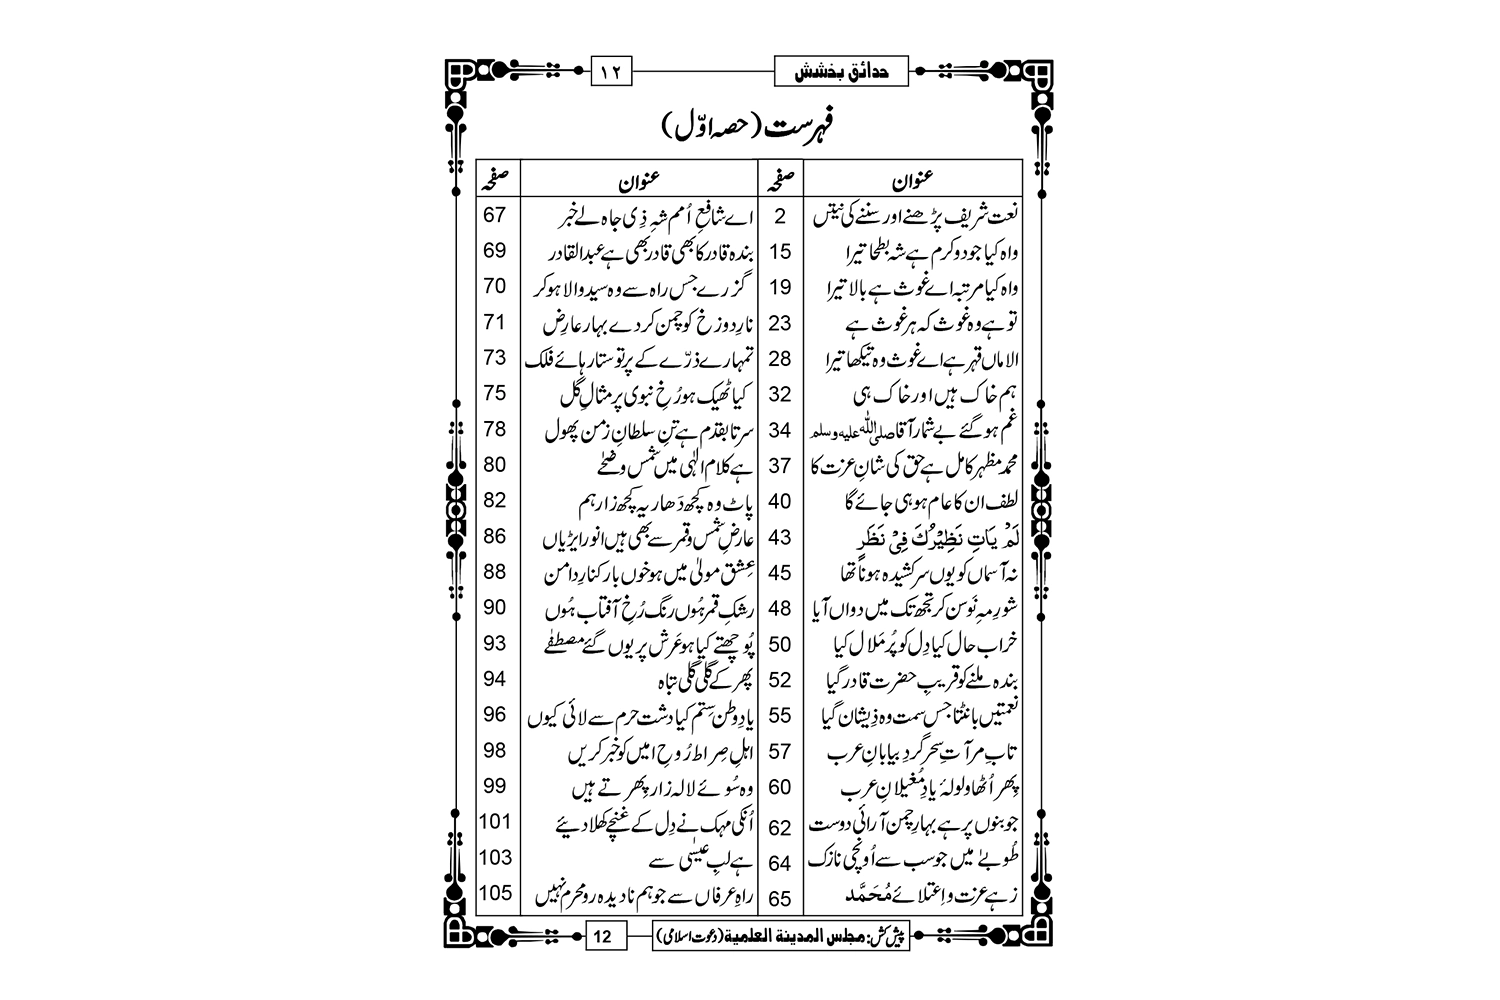 حدائق بخشش ۱۲
فہرست (حصہ اوّل)
عنوان صفحہ عنوان صفحہ
نعت شریف پڑھنے اور سننے کی نیتیں 2 اے شافعِ اُمم شہِ ذِی جاہ لے خبر 67
واہ کیا جود و کرم ہے شہ بطحا تیرا 15 بندہ قادر کا بھی قادر بھی ہے عبدالقادر 69
واہ کیا مرتبہ اے غوث ہے بالا تیرا 19 گزرے جس راہ سے وہ سید والا ہوکر 70
تو ہے وہ غوث کہ ہر غوث ہے 23 نارِ دوزخ کو چمن کردے بہارِ عارِض 71
الاماں قہر ہے اے غوث وہ تیکھا تیرا 28 تمہارے ذرّے کے پرتو ستارہائے فلک 73
ہم خاک ہیں اور خاک ہی 32 کیا ٹھیک ہو رُخِ نبوی پر مثالِ گل 75
غم ہوگئے بے شمار آقا صلی اللہ علیہ وسلم 34 سر تا بقدم ہے تنِ سلطانِ زمن پھول 78
محمد مظہرِ کامل ہے حق کی شانِ عزت کا 37 ہے کلامِ الٰہی میں شمس وضحٰے 80
لطف ان کا عام ہو ہی جائے گا 40 پاٹ وہ کچھ دَھار یہ کچھ زار ہم 82
لَمْ یَاتِ نَظِیْرُكَ فِیْ نَظَرٍ 43 عارضِ شمس و قمر سے بھی ہیں انور ایڑیاں 86
نہ آسماں کو یوں سرکشیدہ ہونا تھا 45 عِشق مولیٰ میں ہو خوں بار کنارِ دامن 88
شورِ مہِ نَو سن کر تجھ تک میں دواں آیا 48 رشکِ قمر ہُوں رنگ رُخِ آفتاب ہُوں 90
خراب حال کیا دِل کو پُر مَلال کیا 50 پُوچھتے کیا ہو عَرش پر یوں گئے مصطفٰے 93
بندہ ملنے کو قریبِ حضرت قادر گیا 52 پھر کے گلی گلی تباہ 94
نعمتیں بانٹتا جس سمت وہ ذِیشان گیا 55 یادِ وطن سِتم کیا دشت حرم سے لائی کیوں 96
تابِ مرآتِ سَحر گردِ بیابانِ عرب 57 اہلِ صِراط رُوحِ امیں کو خبر کریں 98
پھر اُٹھا ولولۂ یادِ مُغیلانِ عرب 60 وہ سُوئے لالہ زار پھرتے ہیں 99
جوبنوں پر ہے بہارِ چمن آرائی دوست 62 اُنکی مہک نے دِل کے غنچے کھلا دیئے 101
طُوبےٰ میں جو سب سے اُونچی نازک 64 ہے لبِ عیسٰی سے 103
زہے عزت و اِعتلائے مُحَمَّد 65 راہِ عرفاں سے جو ہم نادیدہ رو محرم نہیں 105
پیش کش: مجلس المدينة العلمية (دعوت اسلامی) 12